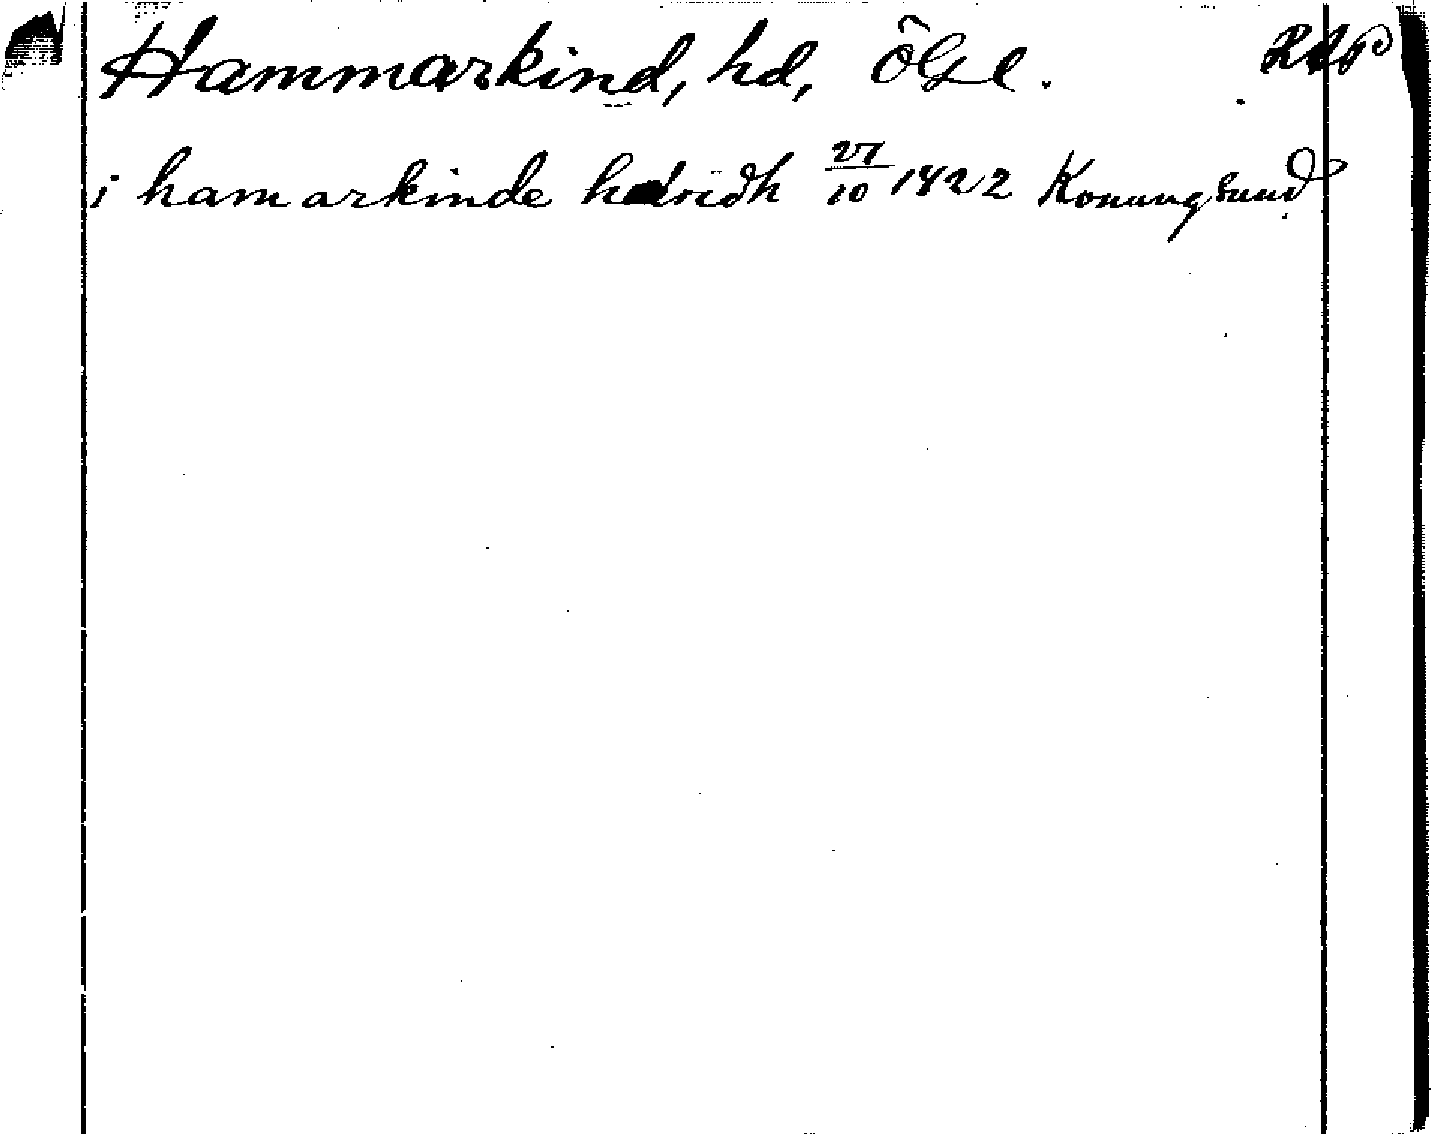 Hammarkind, hd, ÖGtl. RAP
i hamarkinde hdridh 27/10 1422 Konungsund